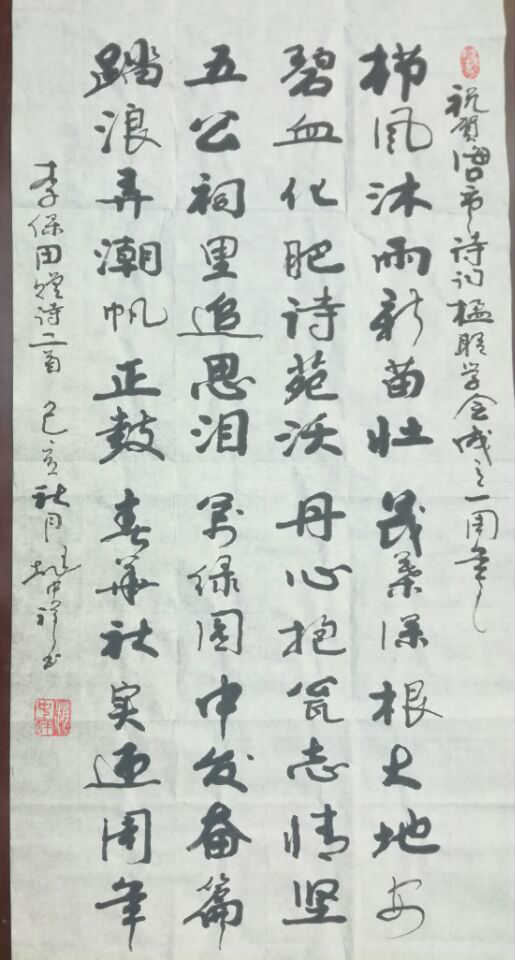 祝贺海口市诗词楹联学会成立一周年
栉风沐雨新苗壮 茂叶深根大地安
碧血化肥诗苑沃 丹心抱瓮志情坚
五公祠里追思泪 万绿园中发奋篇
踏浪弄潮帆正鼓 春华秋实迎周年
李保田赠诗二首 己亥秋月 中祥书